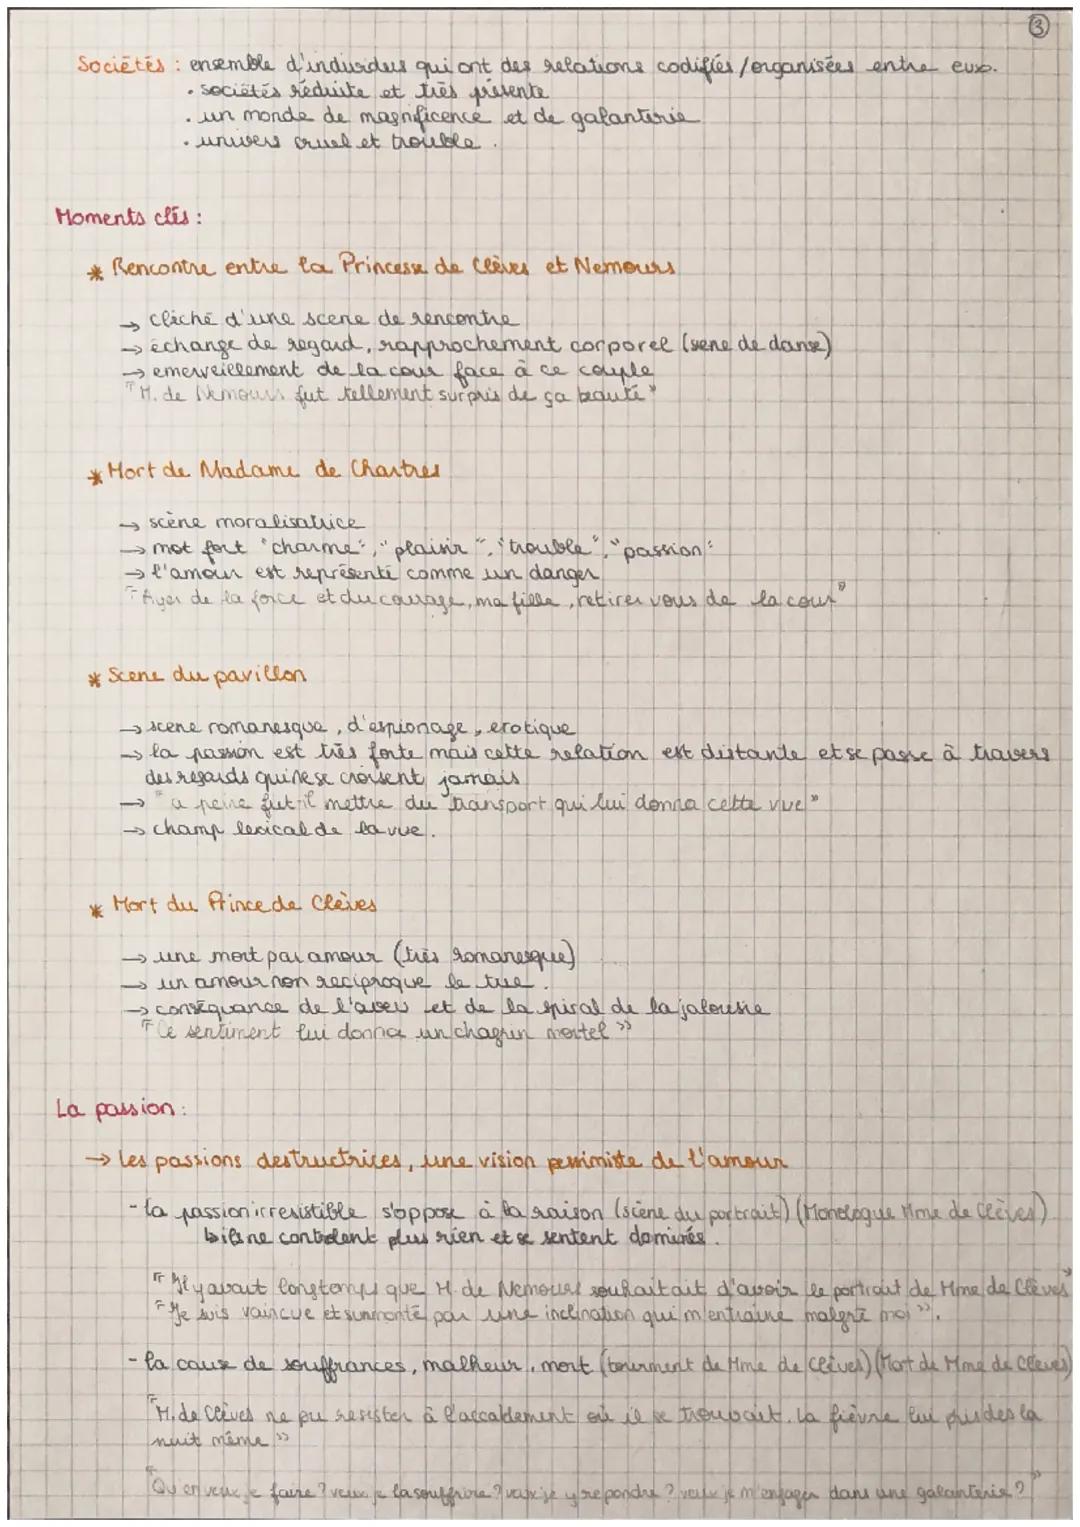 ③
Sociétés : ensemble d'individus qui ont des relations codifiés / organisées entre eux.
• sociétés réduite et très présente
• un monde de magnificence et de galanterie
• univers cruel et trouble.
Moments clés :
* Rencontre entre la Princesse de Clèves et Nemours
→ cliché d'une scene de rencontre
→ échange de regard, rapprochement corporel (sene de danse)
→ emerveillement de la cour face à ce couple
"M. de Nemours fut tellement surpris de ça beauté"
* Mort de Madame de Chartres
→ scène moralisatrice
→ mot fort "charme", "plaisir", "trouble", "passion"
→ l'amour est représenté comme un danger
"Ayez de la force et du courage, ma fille, retirer vous de la cour"
* Scene du pavillon
→ scene romanesque, d'espionage, erotique
→ la passion est très forte mais cette relation est distante et se passe à travers
des regards qui ne se croisent jamais
→ "a peine fut-il mettre du transport qui lui donna cette vue"
→ champ lexical de la vue.
* Mort du Prince de Clèves
→ une mort par amour (très romanesque)
→ un amour non reciproque le tue.
→ conséquance de l'aveu et de la spiral de la jalousie
"Ce sentiment lui donna un chagrin mortel"
La passion :
→ les passions destructrices, une vision pessimiste de l'amour
- la passion irresistible s'oppose à la raison (scène du portrait) (Monologue Mme de Clèves)
↳ ils ne controlent plus rien et se sentent dominés.
"Il y avait longtemps que M. de Nemours souhaitait d'avoir le portrait de Mme de Clèves"
"Je suis vaincue et surmonté par une inclination qui m'entraine malgré moi".
- la cause de souffrances, malheur, mort (tourment de Mme de Clèves) (Mort de Mme de Clèves)
"M. de Clèves ne pu resister à l'accablement où il se trouvait. La fièvre lui pris des la
nuit même"
"Qu'en veux je faire ? veux je la souffrire ? veux je y repondre ? veux je m'engager dans une galanterie ?"